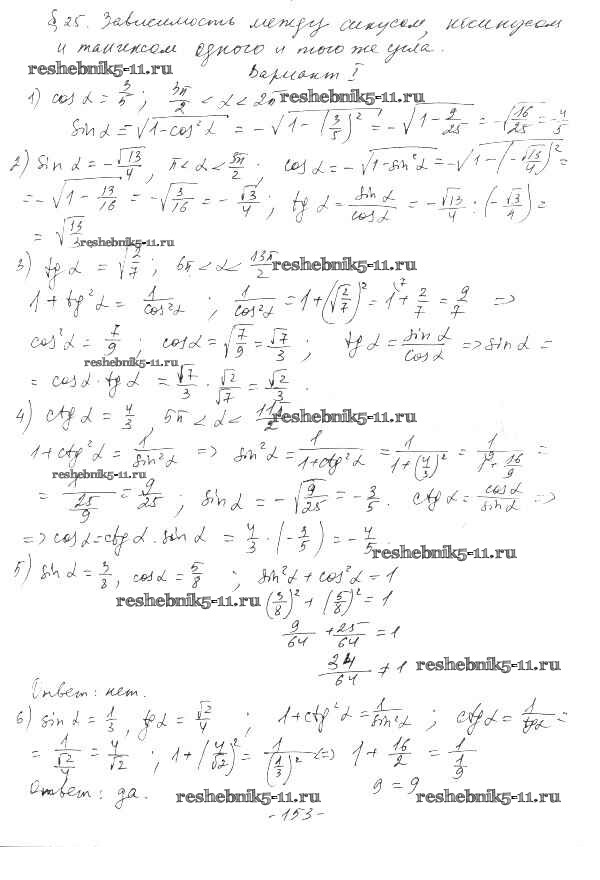 § 25. Зависимость между синусом, косинусом
и тангенсом одного и того же угла.
reshebnik5-11.ru
Вариант I
1) cos α = 3/5 ; 3π/2 < α < 2π
reshebnik5-11.ru
sin α = √(1-cos² α) = -√(1-(3/5)²) = -√(1-2/25) = -√(16/25) = -4/5
2) sin α = -√13/4, π < α < 3π/2. cos α = -√(1-sin² α) = -√(1-(-√13/4)²) =
= -√(1-13/16) = -√(3/16) = -√3/4 ; tg α = sin α/cos α = -√13/4 : (-√3/4) =
= √(13/3)
reshebnik5-11.ru
3) tg α = √(2/7) ; 6π < α < 13π/2
reshebnik5-11.ru
1 + tg² α = 1/cos² α ; 1/cos² α = 1+(√(2/7))² = 1+2/7 = 9/7 =>
cos² α = 7/9 ; cos α = √(7/9) = √7/3 ; tg α = sin α/cos α => sin α =
reshebnik5-11.ru
= cos α · tg α = √7/3 · √2/√7 = √2/3 .
4) ctg α = 4/3 , 5π < α < 11π/2
reshebnik5-11.ru
1+ctg² α = 1/sin² α => sin² α = 1/(1+ctg² α) = 1/(1+(4/3)²) = 1/(1+16/9) =
reshebnik5-11.ru
= 1/(25/9) = 9/25 ; sin α = -√(9/25) = -3/5. ctg α = cos α/sin α =>
=> cos α = ctg α · sin α = 4/3 · (-3/5) = -4/5
reshebnik5-11.ru
5) sin α = 3/8, cos α = 5/8 ; sin² α + cos² α = 1
reshebnik5-11.ru
(3/8)² + (5/8)² = 1
9/64 + 25/64 = 1
34/64 ≠ 1
reshebnik5-11.ru
Ответ: нет.
6) sin α = 1/3, tg α = √2/4 ; 1+ctg² α = 1/sin² α ; ctg α = 1/tg α =
= 1/(√2/4) = 4/√2 ; 1+(4/√2)² = 1/(1/3)² <=> 1+16/2 = 1/(1/9)
Ответ: да.
reshebnik5-11.ru
9 = 9
reshebnik5-11.ru
-153-